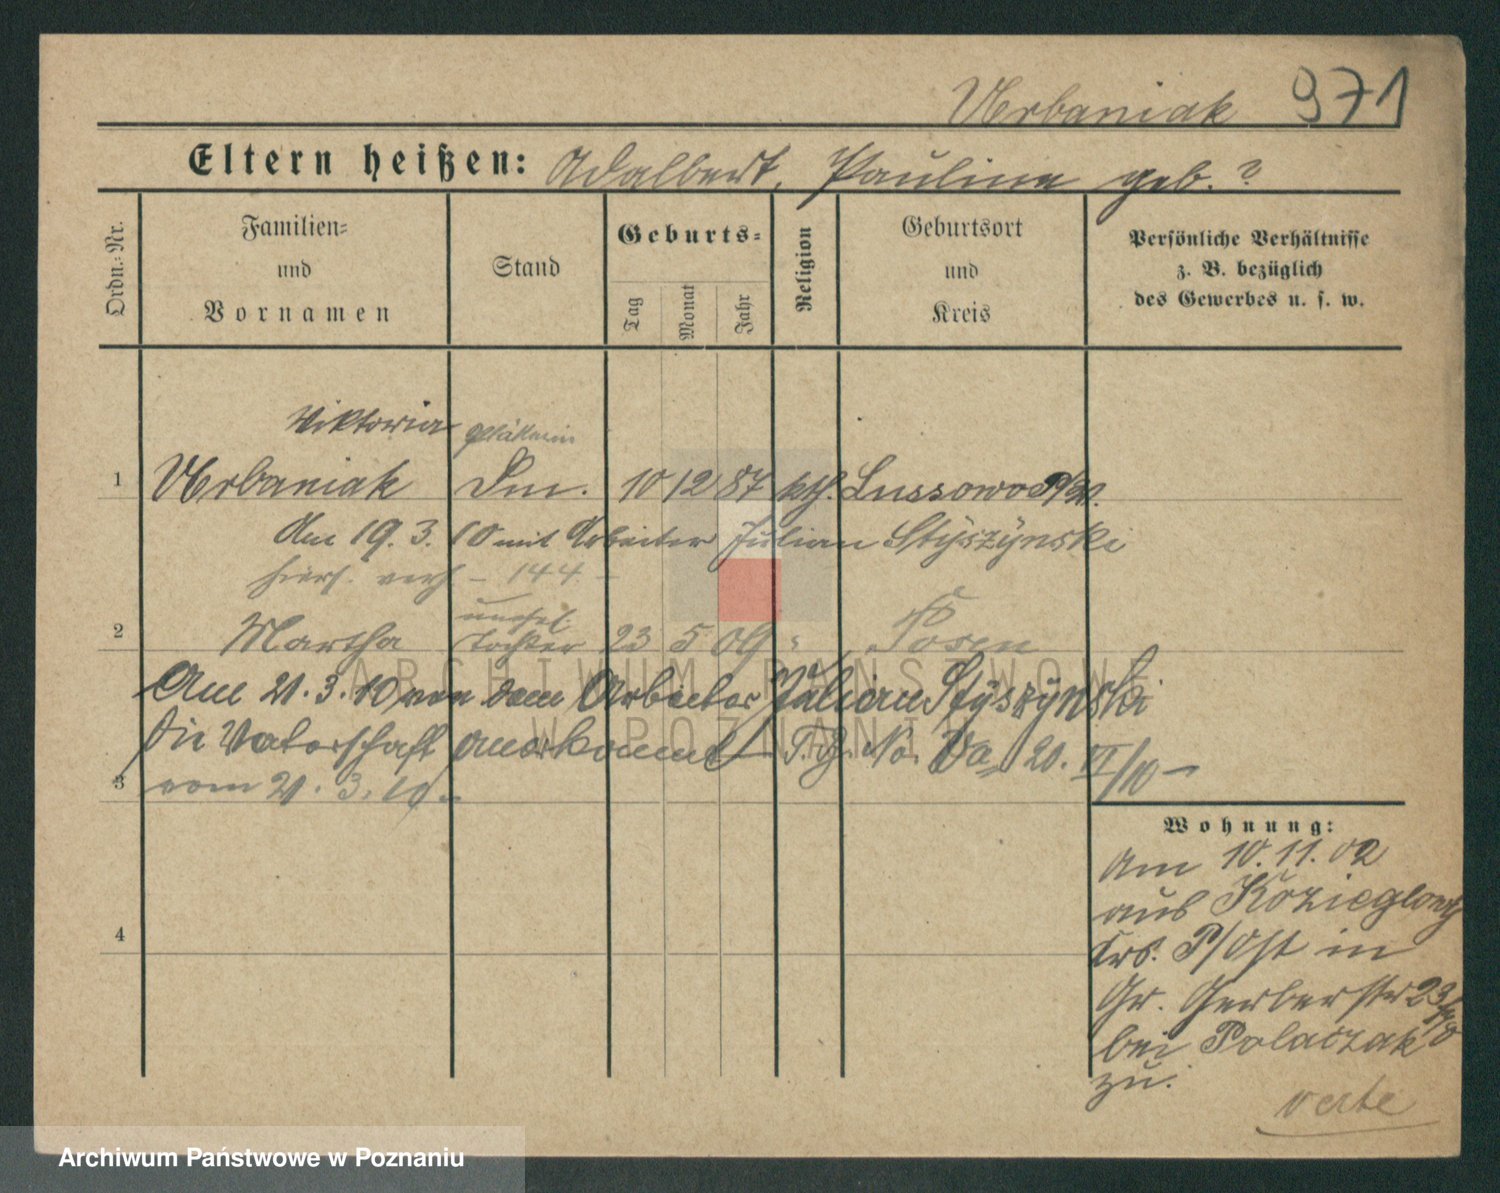 Urbaniak 971
Eltern heißen: Adalbert, Pauline geb. ?
Ordn.-Nr.
Familien-
und
Vornamen
Stand
Geburts-
Tag
Monat
Jahr
Religion
Geburtsort
und
Kreis
Persönliche Verhältnisse
z. B. bezüglich
des Gewerbes u. s. w.
Viktoria
1 Urbaniak 10 12 87 kth. Lussowo P/W.
Am 19. 3. 10 mit Arbeiter Julian Styszynski
hiers. verh. – 144 –
unehel.
2 Martha Tochter 23 5 09 " Posen
Am 21. 3. 10 von dem Arbeiter Julian Styszynski
die Vaterschaft anerkannt T. B. No. 20. VI/10 –
3 vom 21. 3. 10 –
Wohnung:
Am 10. 11. 02
aus Koziegłowy
Krs. P/Ost in
4
Gr. Gerberstr 23
bei Polaczak
zu.
verte
ARCHIWUM PAŃSTWOWE
W POZNANIU
Archiwum Państwowe w Poznaniu